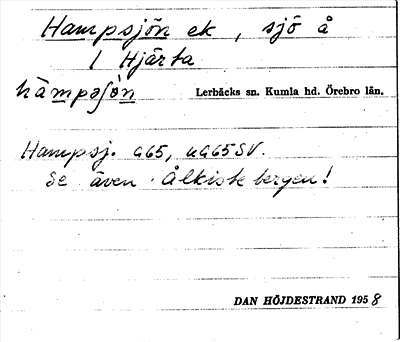 Hampsjön ek, sjö å
1 Hjärta
hàmpʃö̀n Lerbäcks sn. Kumla hd. Örebro län.
Hampsj. G65, uG65SV.
Se även Ålkistebergen!
DAN HÖJDESTRAND 1958